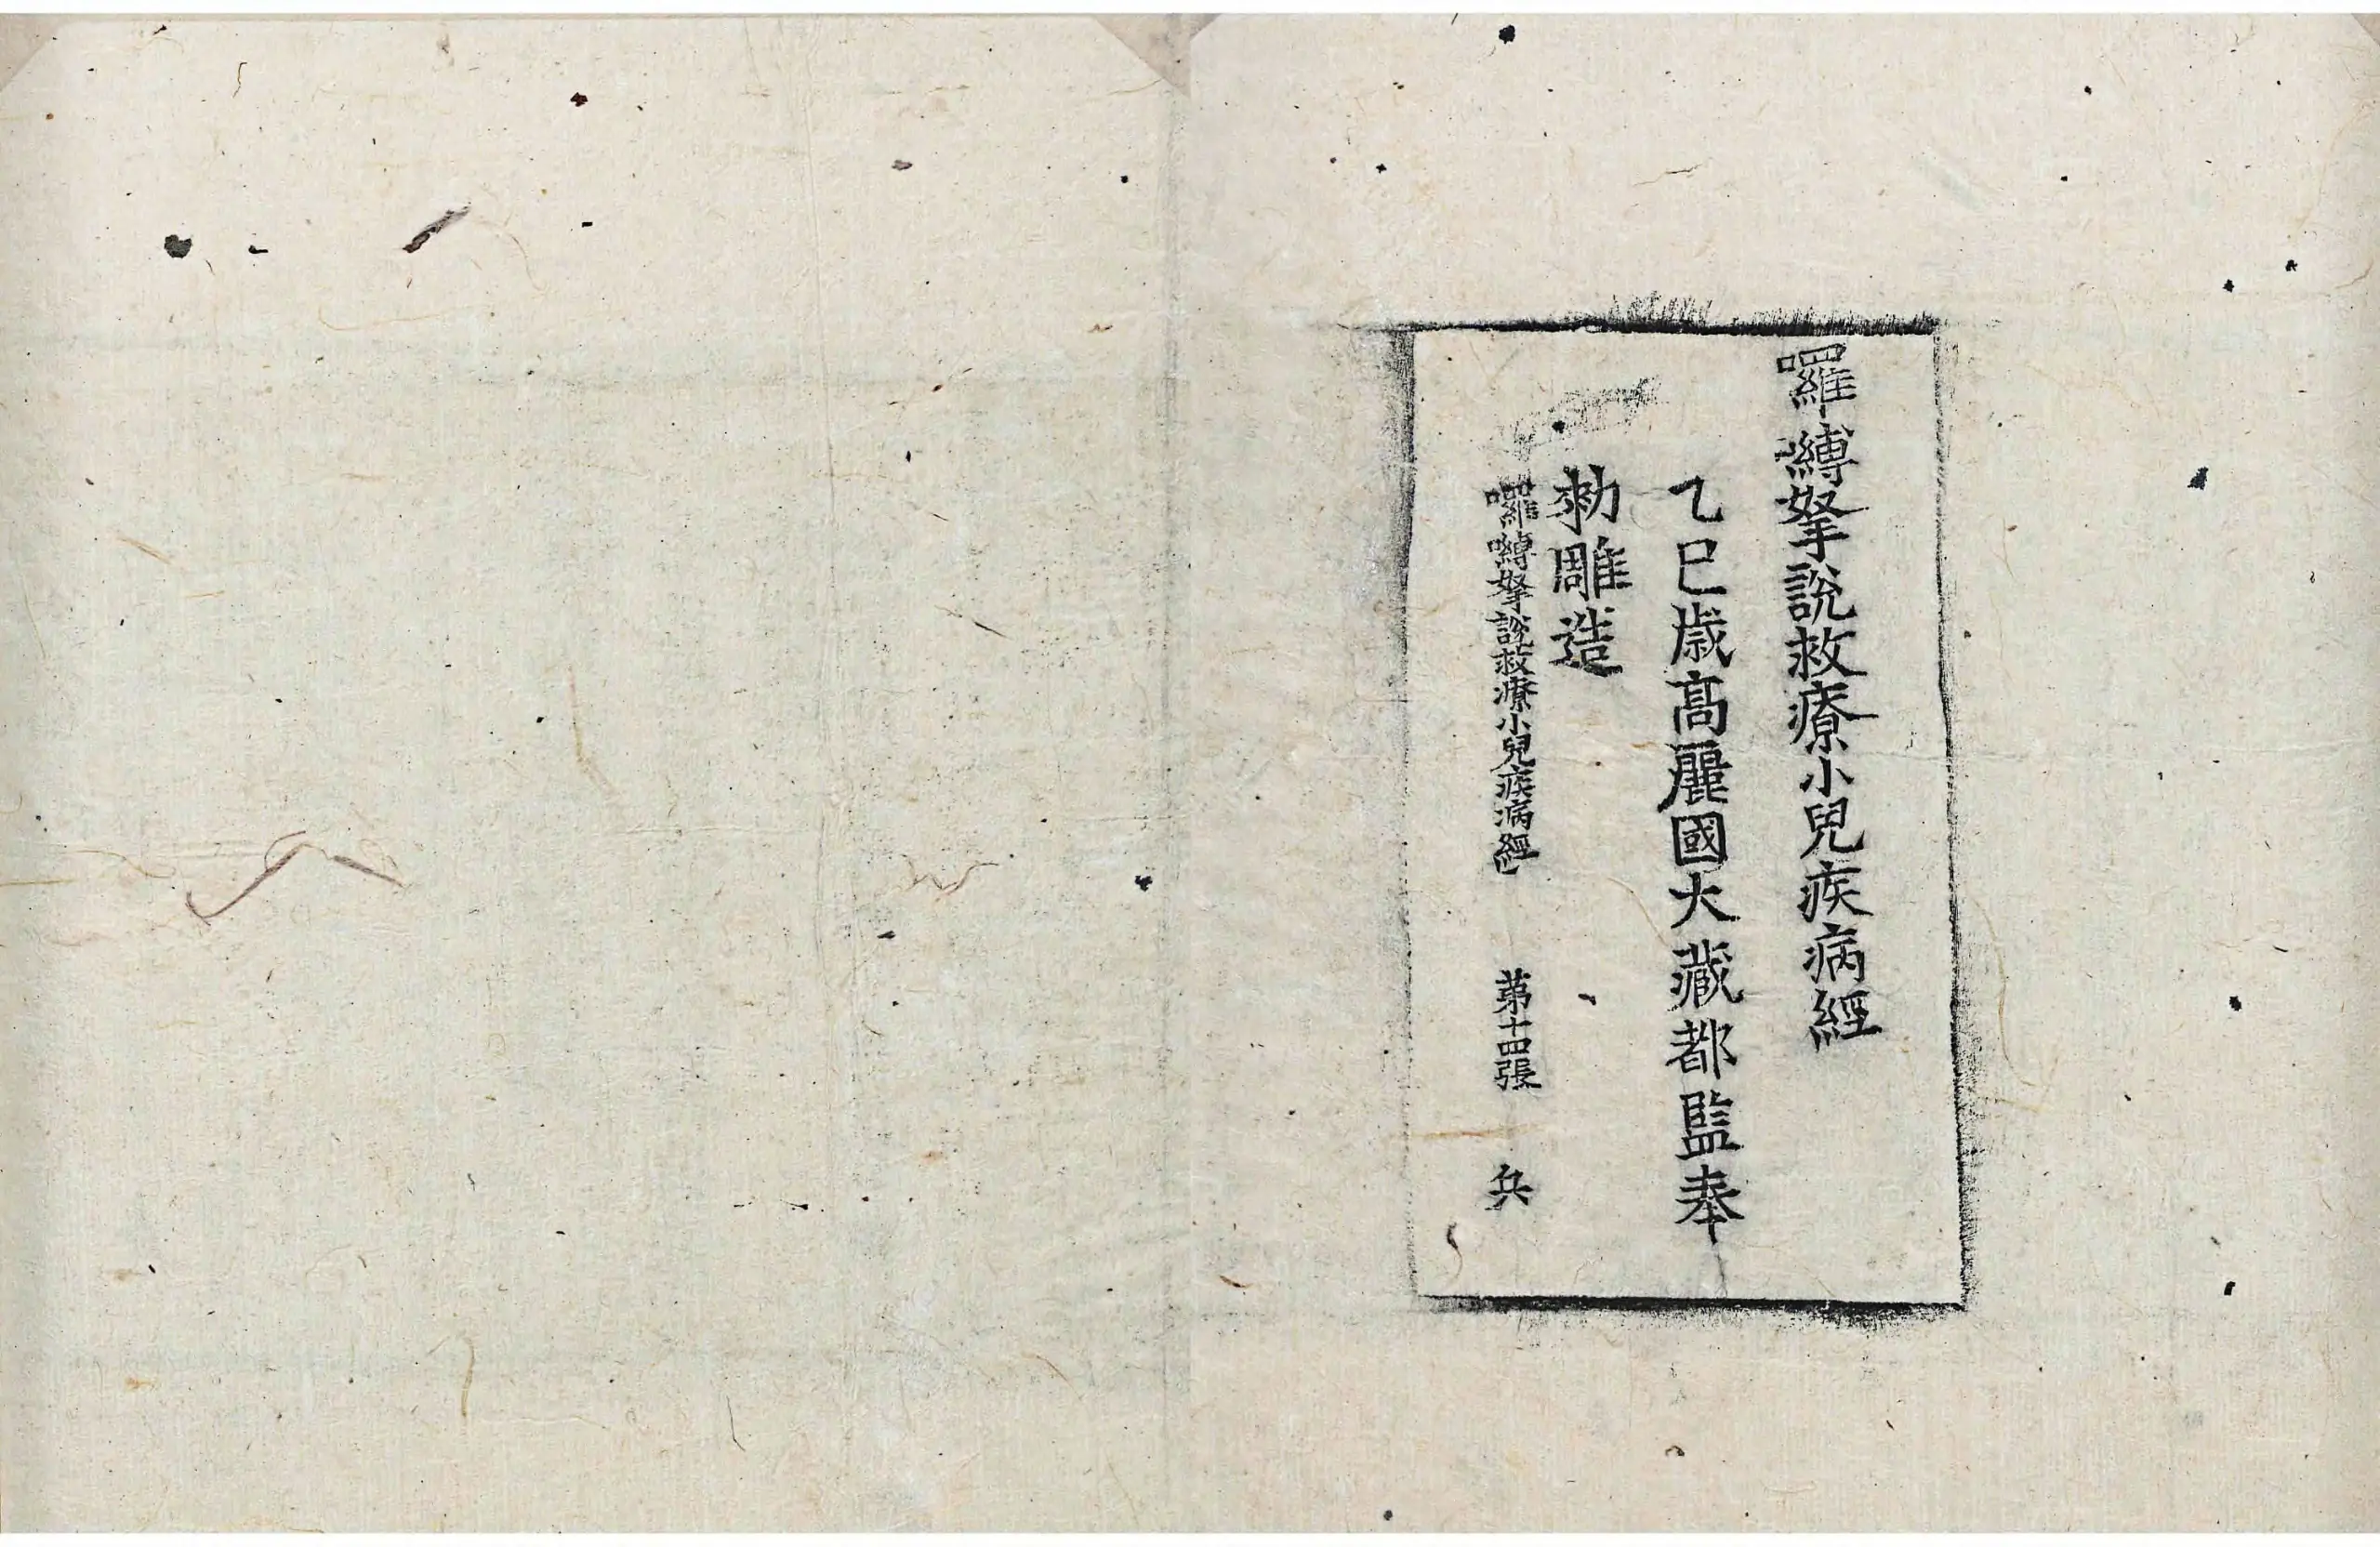 囉嚩拏說救療小兒疾病經
乙巳歳高麗國大藏都監奉
勑雕造
囉嚩拏說救療小兒疾病經 苐十四張 兵